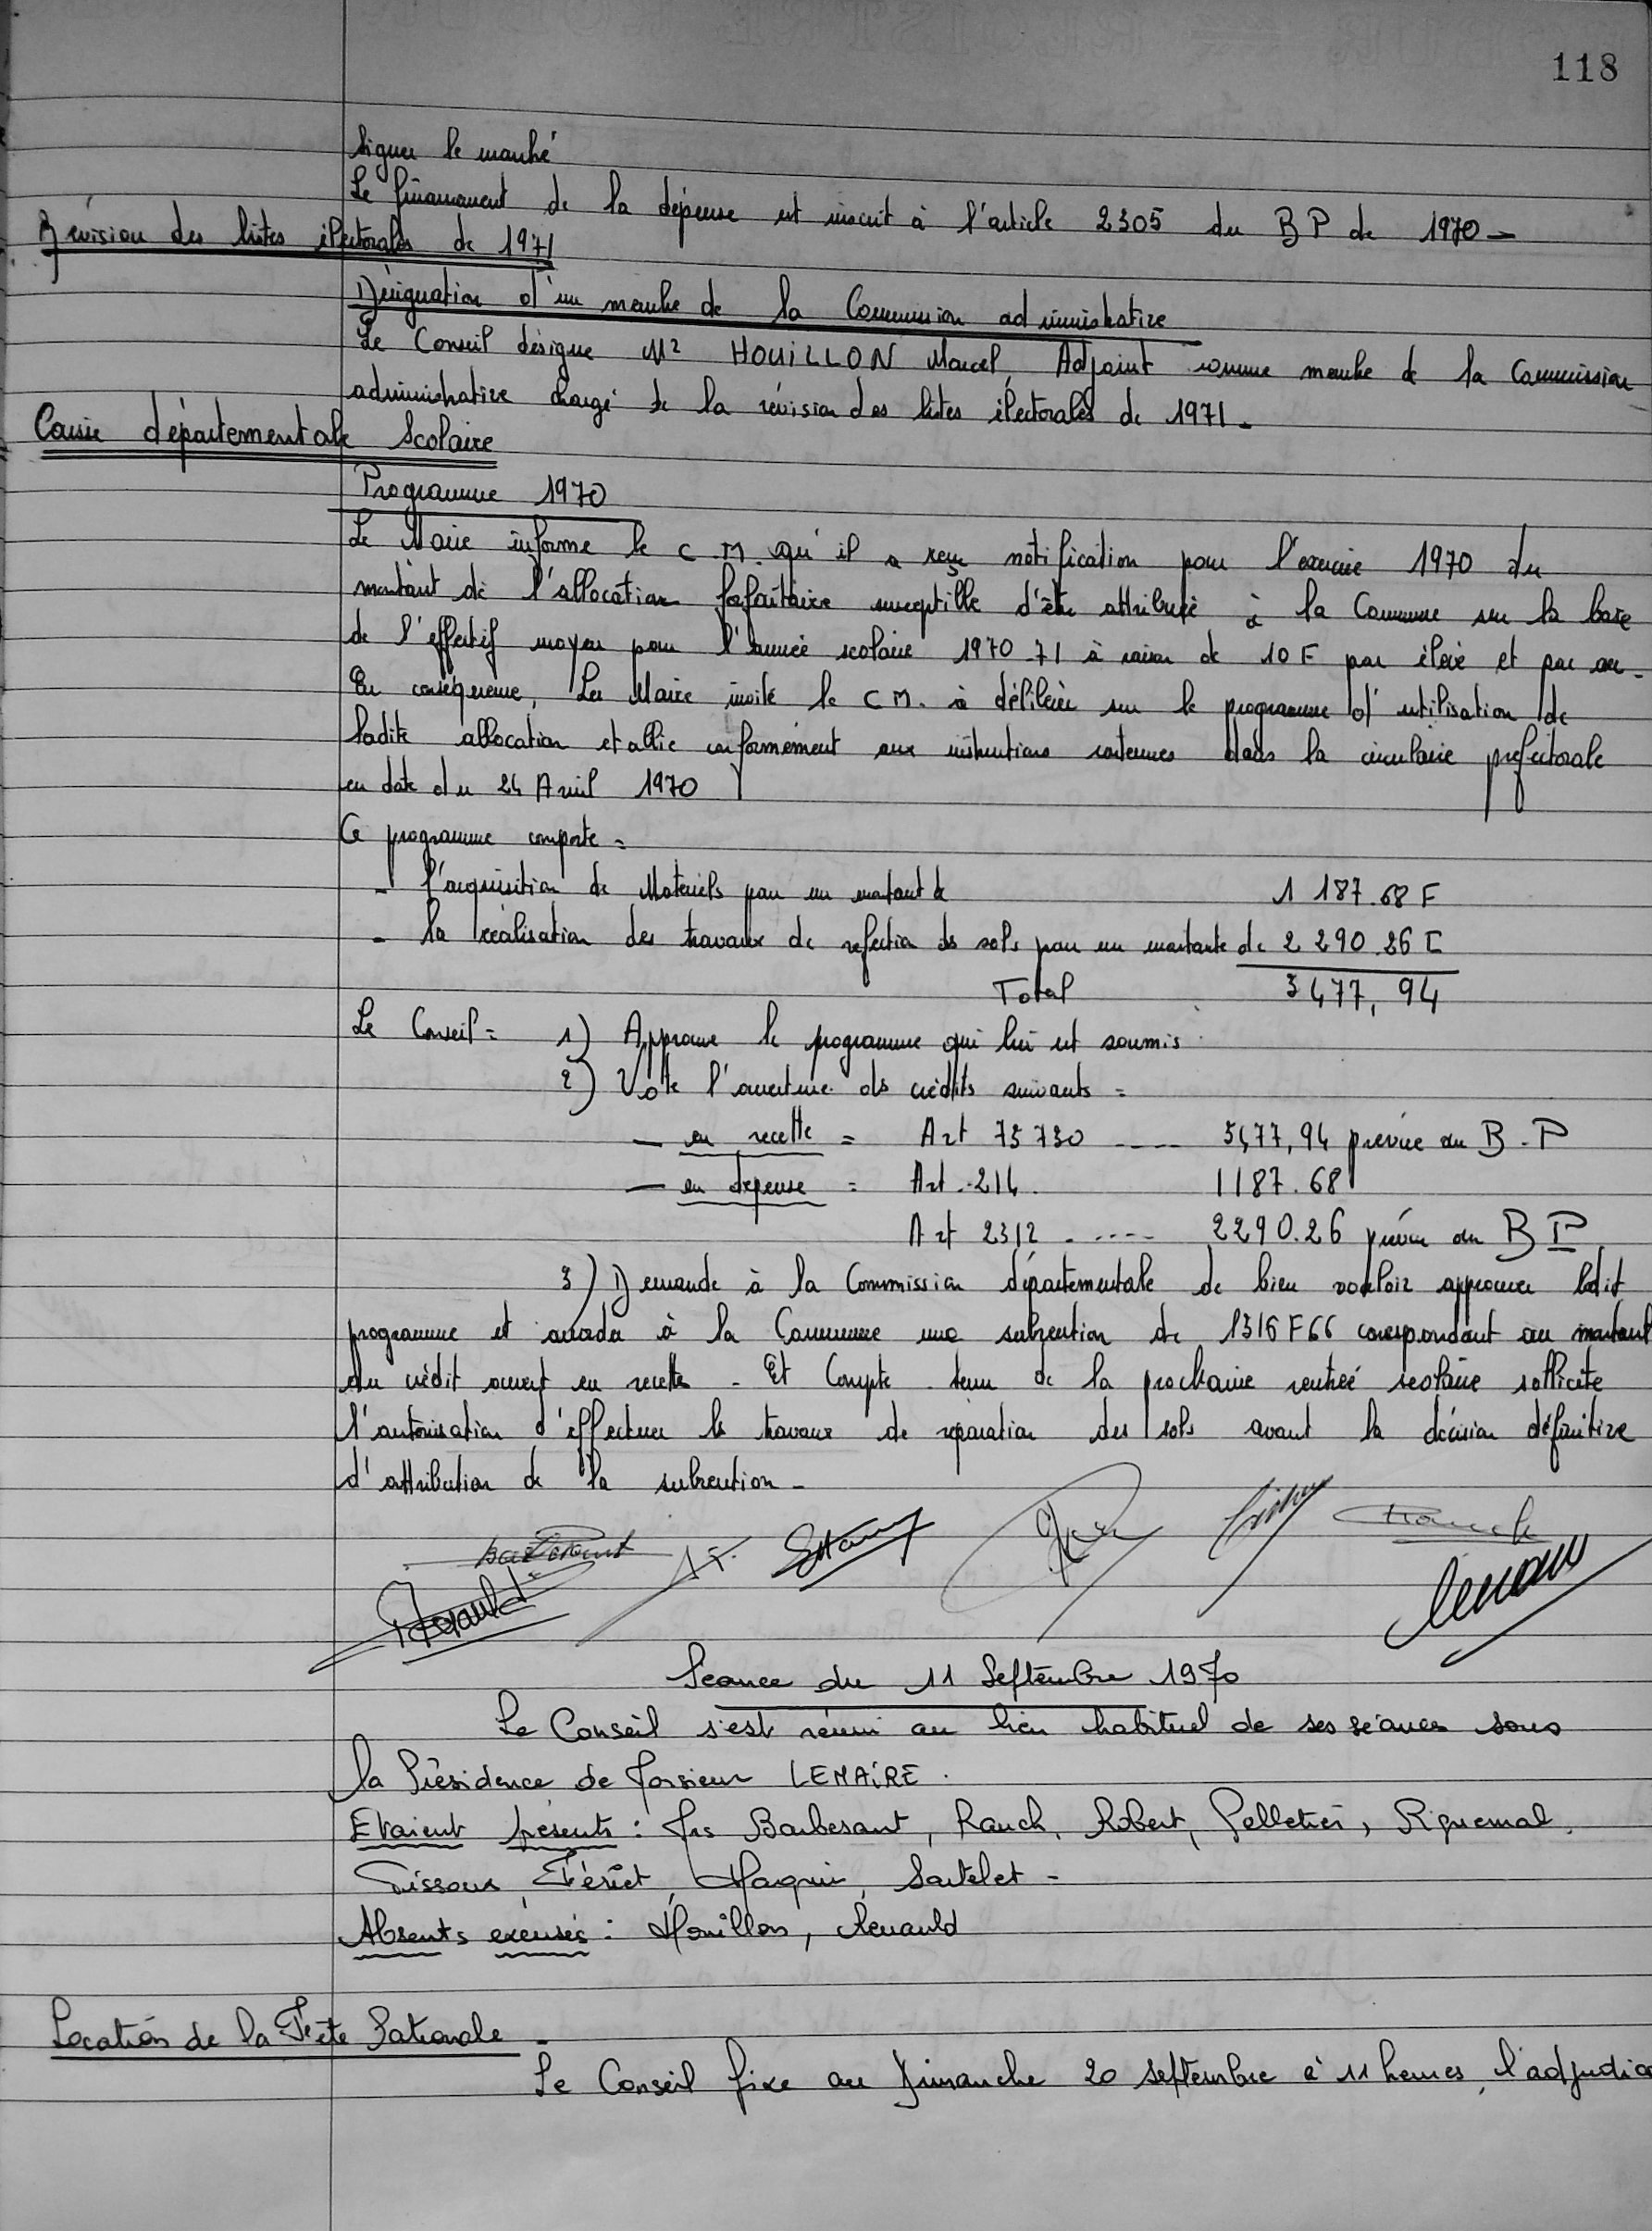 118
signer le marché
Le financement de la dépense est inscrit à l'article 2305 du BP de 1970 -
Révision des listes électorales de 1971
Désignation d'un membre de la Commission administrative
Le Conseil désigne Mr HOUILLON Marcel, Adjoint comme membre de la Commission
administrative chargé de la révision des listes électorales de 1971 -
Caisse départementale Scolaire
Programme 1970
Le Maire informe le C.M. qu'il a reçu notification pour l'exercice 1970 du
montant de l'allocation forfaitaire susceptible d'être attribuée à la Commune sur la base
de l'effectif moyen pour l'année scolaire 1970-71 à raison de 10 F par élève et par an -
En conséquence, Le Maire invite le C M. à délibérer sur le programme d'utilisation de
ladite allocation établie conformément aux instructions contenues dans la circulaire préfectorale
en date du 24 Avril 1970
Ce programme comporte =
- l'acquisition de Matériels pour un montant de 1 187.68 F
- la réalisation des travaux de refection des sols pour un montant de 2 290.26 F
Total 3477,94
Le Conseil = 1) Approuve le programme qui lui est soumis
2) Vote l'ouverture des crédits suivants =
- en recette = Art 75 730 ---- 3477,94 prévue au B.P
- en dépense = Art. 214. 1187.68
Art 2312 ..... 2290.26 prévu au B P
3) Demande à la Commission départementale de bien vouloir approuver ledit
programme et accorder à la Commune une subvention de 1316 F66 correspondant au montant
du crédit ouvert en recette - Et Compte tenu de la prochaine rentrée scolaire sollicite
l'autorisation d'effectuer les travaux de réparation des sols avant la décision définitive
d'attribution de la subvention -
Séance du 11 Septembre 1970
Le Conseil s'est réuni au lieu habituel de ses séances sous
la Présidence de Monsieur LEMAIRE.
Etaient présents : Mrs Barbesant, Rauch, Robert, Pelletier, Riquemal,
Tissoux, Fériet, Haquin, Sartelet -
Absents excusés : Houillon, Renauld
Location de la Fête Patronale -
Le Conseil fixe au Dimanche 20 septembre à 11 heures, l'adjudica